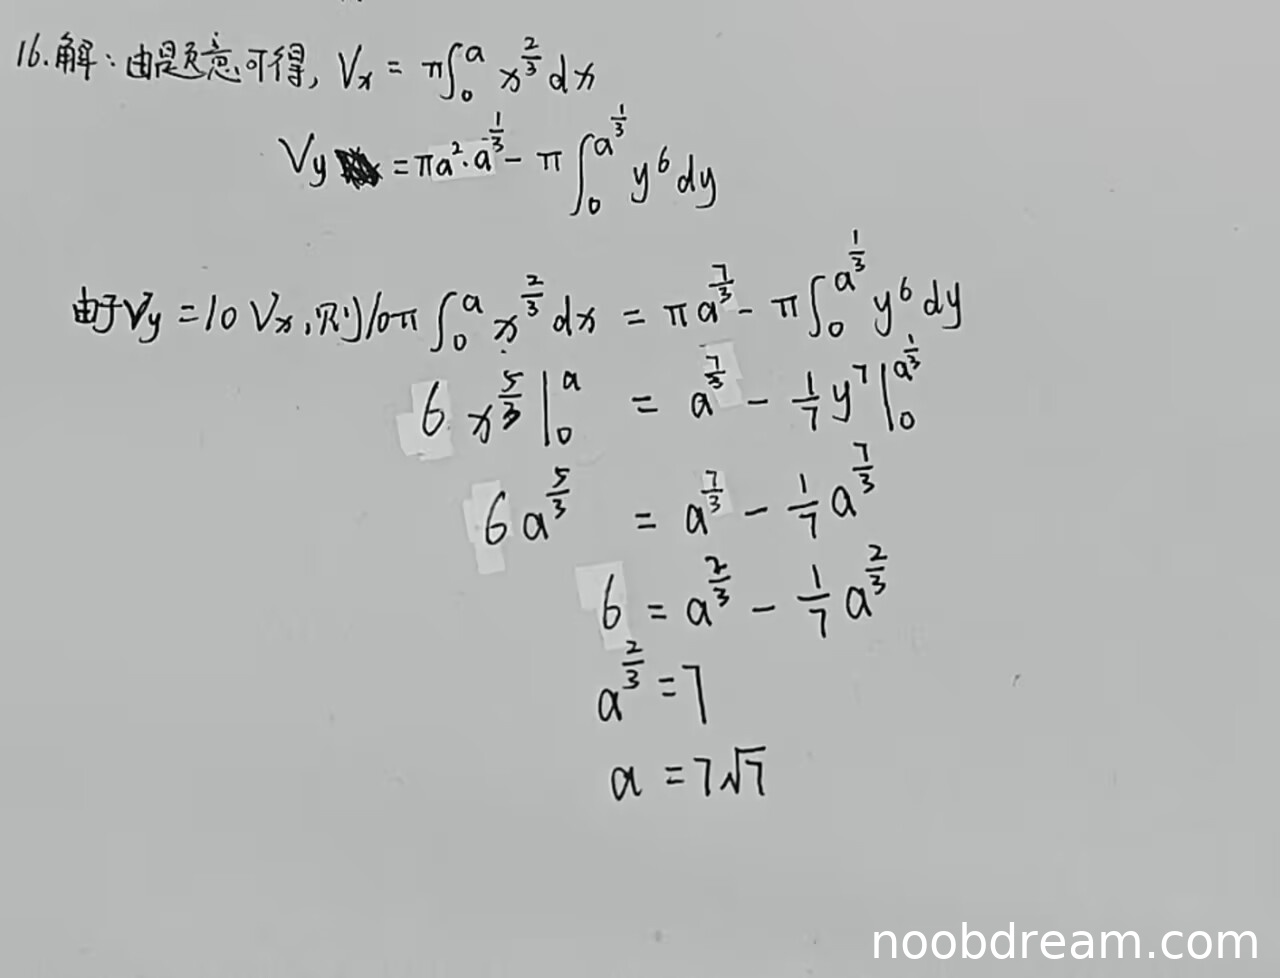 16.解：由题意可得, Vₓ = π∫₀^a x^(2/3) dx
V_y = πa²·a^(1/3) - π∫₀^(a^(1/3)) y⁶dy
由于V_y = 10Vₓ, 则10π∫₀^a x^(2/3) dx = πa^(7/3) - π∫₀^(a^(1/3)) y⁶dy
6x^(5/3)|₀^a = a^(7/3) - 1/7 y⁷|₀^(a^(1/3))
6a^(5/3) = a^(7/3) - 1/7 a^(7/3)
6 = a^(2/3) - 1/7 a^(2/3)
a^(2/3) = 7
a = 7√7
noobdream.com